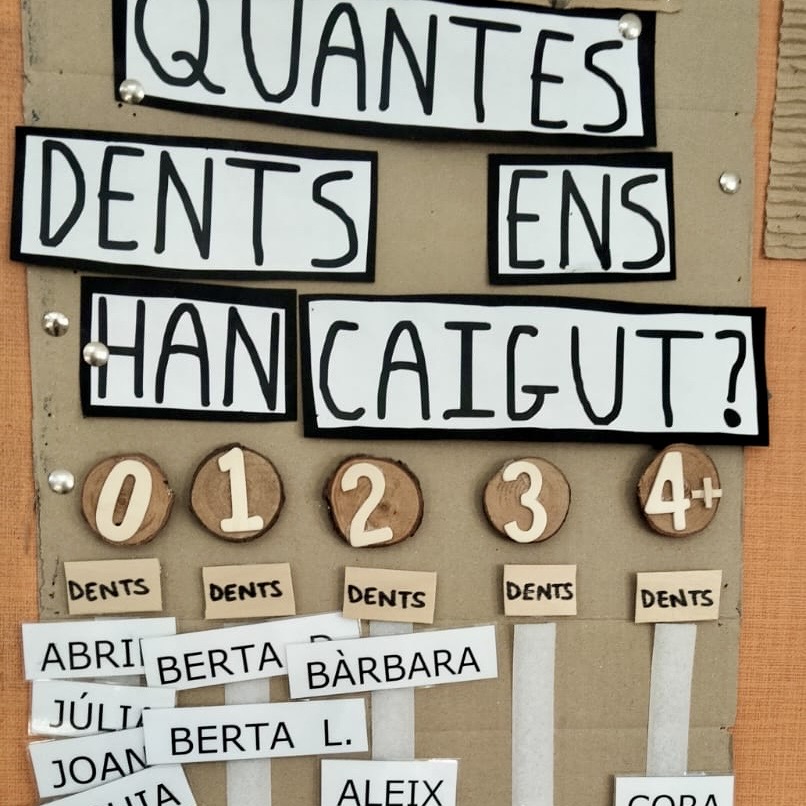 QUANTES
DENTS ENS
HAN CAIGUT?
0 1 2 3 4+
DENTS DENTS DENTS DENTS DENTS
ABRI BERTA BÀRBARA
JÚLIA BERTA L.
JOAN ALEIX